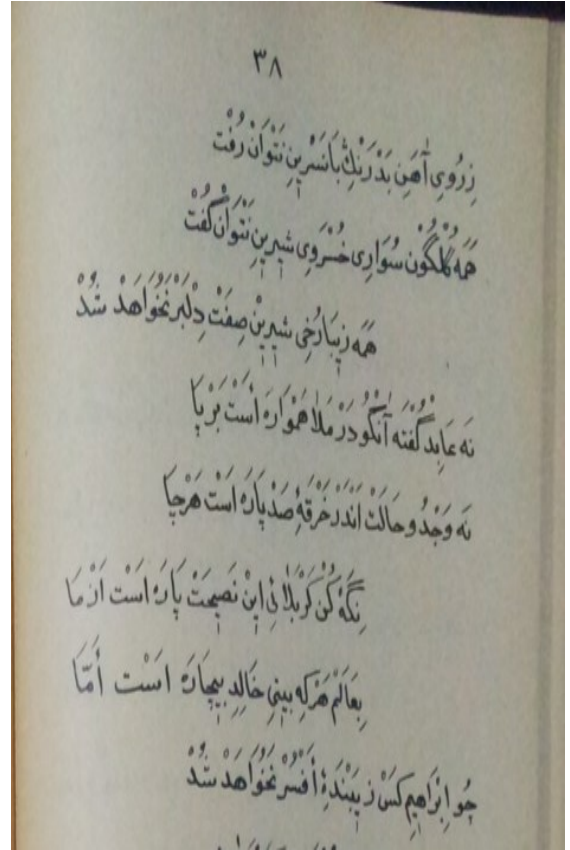 ۳۸
زِرُویِ آهَنِ بَدْرَنْكْ بَانَسْرِینِ نَتْوَانْ رُفْت
هَمَه گُلْگُونْ سُوَارِی خُسْرَوِی شِیرِینِ نَتْوَانْ گُفْت
هَمَه زِیبَارُخِی شِیرِینْ صِفَتْ دِلْبَرْ نَخْوَاهَدْ شُدْ
نَه عَابِدْ گُفْتَه آنْگُو دَرْ مَلَا هَمْوَارَه اَسْتْ بَرْپَا
نَه وَجْدُ وحَالَتْ اَنْدَرْ خَرْقَهٔ صَدْپَارَه اَسْتْ هَرْجَا
نِگَهْ کُنْ کَرْبَلَائِی اِینْ نَصِیحَتْ پَارَه اَسْتْ اَزْ مَا
بِعَالَمْ هَرْکِه بِینِی خَالِدِ بِیچَارَه اَسْت اَمَّا
چُو اِبْرَاهِیمِ کَسْ زِیبَنْدَهٔ اَفْسَرْ نَخْوَاهَدْ شُدْ